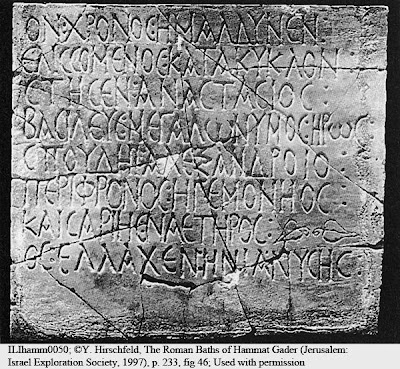 ΟΝ·ΧΡΟΝΟCΗΜΑΛΔΥΝΕΝ
ΕΛΙCCΟΜΕΝΟCΚΑΤΑΚΥΚΛΟΝ
CΤΗCΕΝΑΝΑCΤΑCΙΟC :
ΒΑCΙΛΕΥCΜΕΓΑΛΩΝΥΜΟCΗΡΩC
CΠΟΥΔΗΑΛΕΞΑΝΔΡΟΙΟ :
ΠΕΡΙΦΡΟΝΟCΗΓΕΜΟΝΗΟC :
ΚΑΙCΑΡΙΗCΝΑΕΤΗΡΟC :
ΟC·ΕΛΛΑΧΕΝΗΝΙΑΝΥCΗC :
ILIhamm0050; ©Y. Hirschfeld, The Roman Baths of Hammat Gader (Jerusalem:
Israel Exploration Society, 1997), p. 233, fig 46; Used with permission